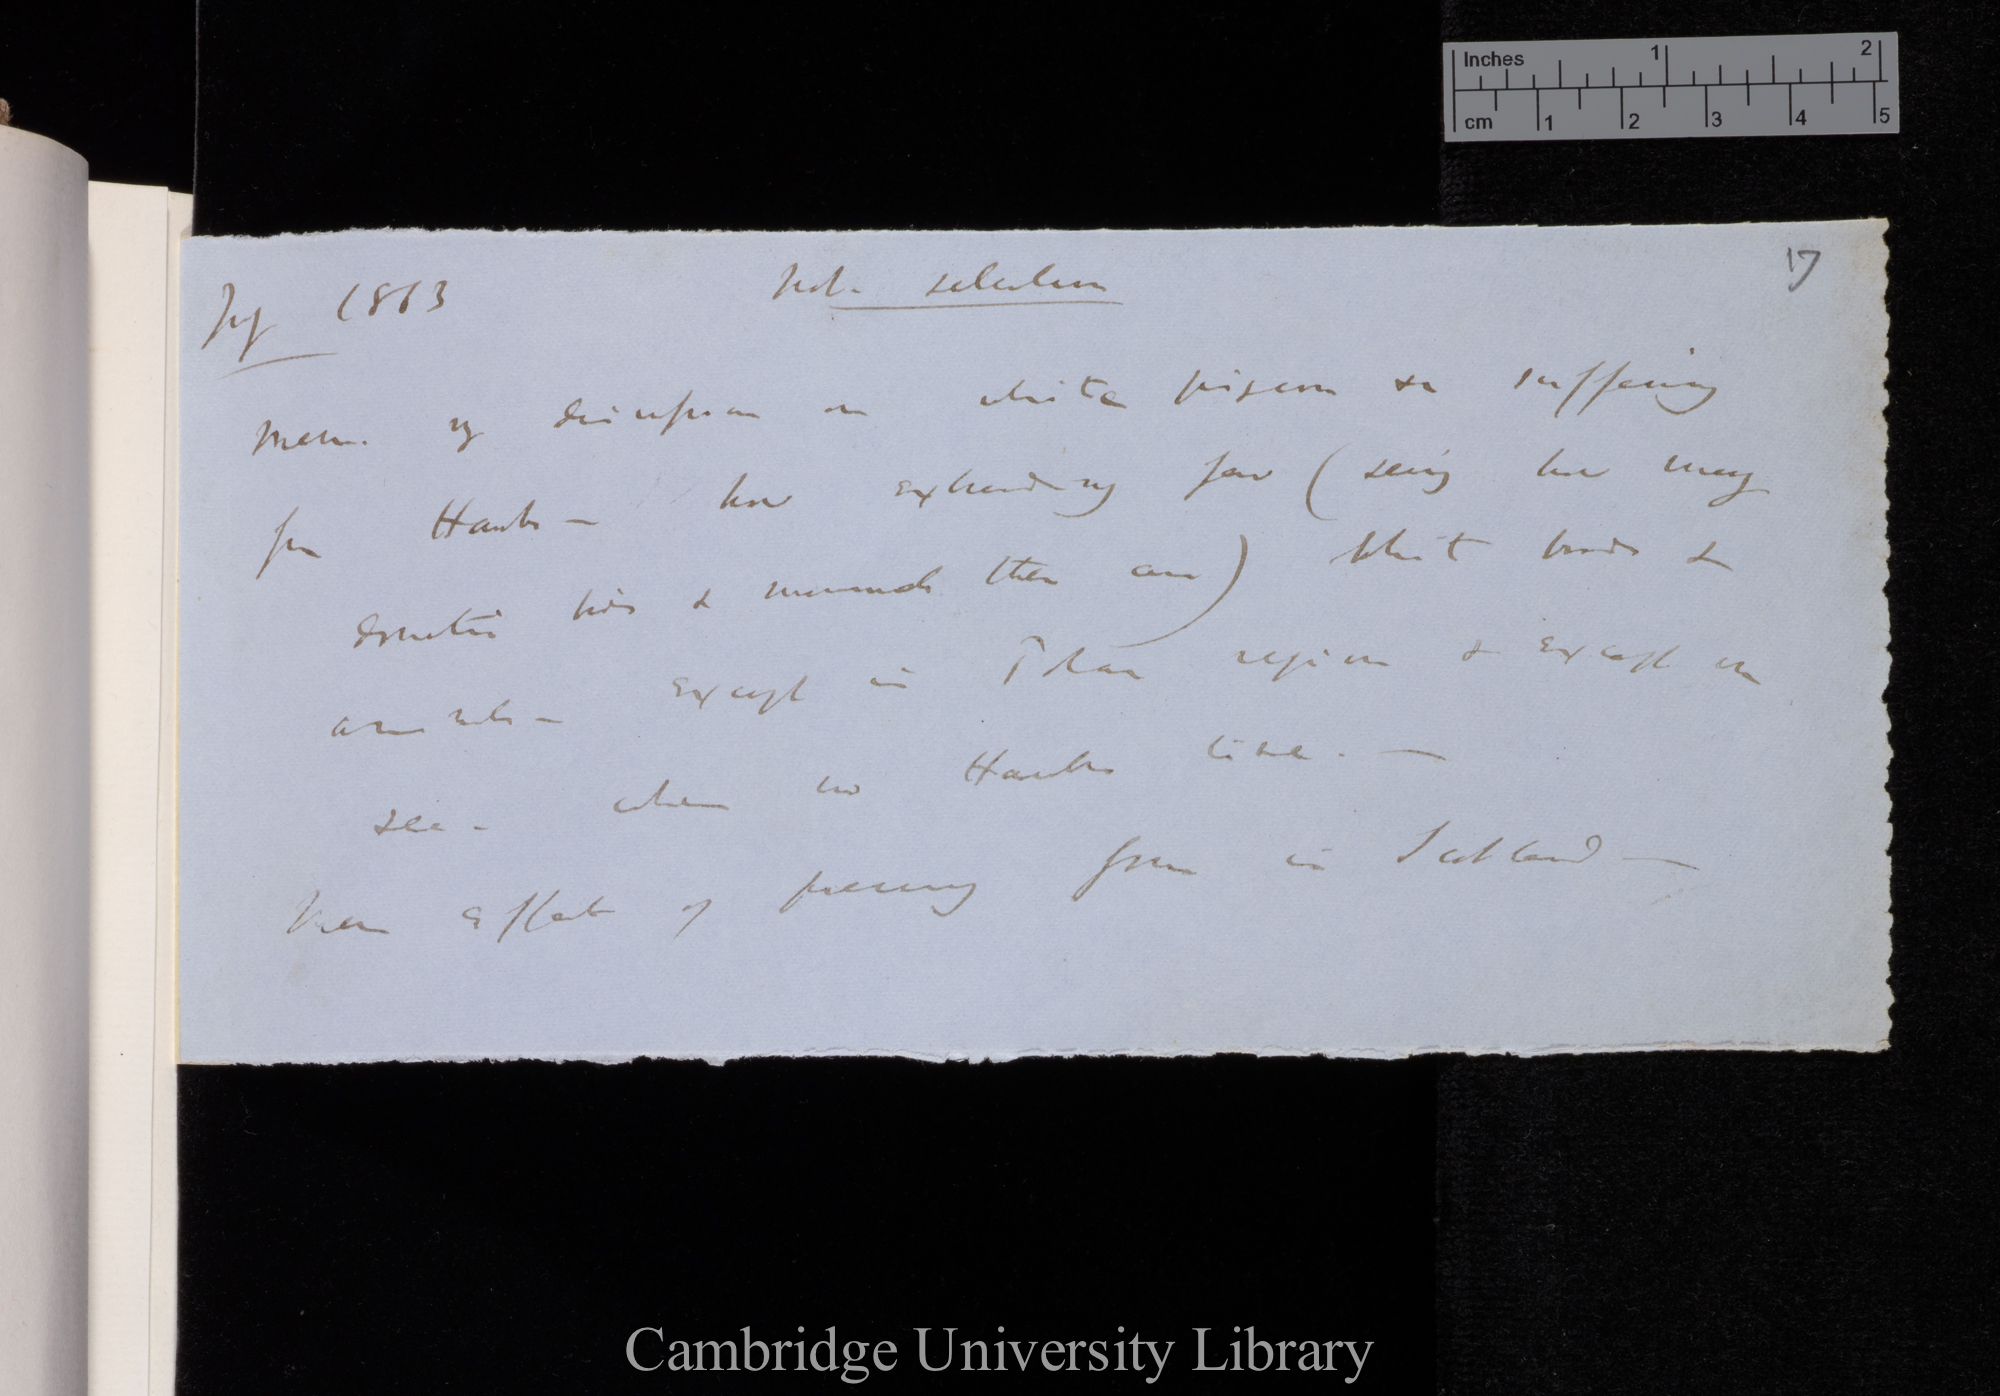 Inches 1 2
cm 1 2 3 4 5
17
1863 Nat. selection
Mem. my discussion on white pigeon &c suffering
from Hawks — how extraordinary few (seeing how many
domestic birds & mammals there are) White birds &
animals — except in Polar regions & except on
sea — where no Hawks live. —
Mem effect of preserving from in Scotland —
Cambridge University Library